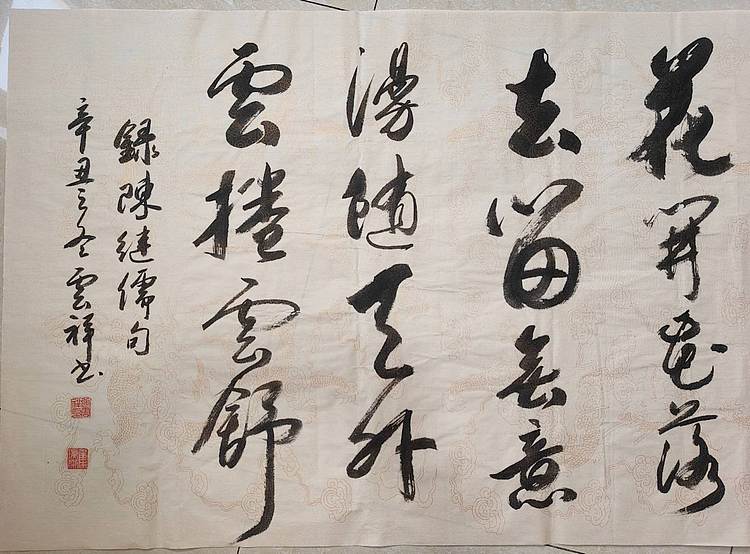 花開花落
去留無意
漫隨天外
雲捲雲舒
録陳继儒句
辛丑之冬雲祥书